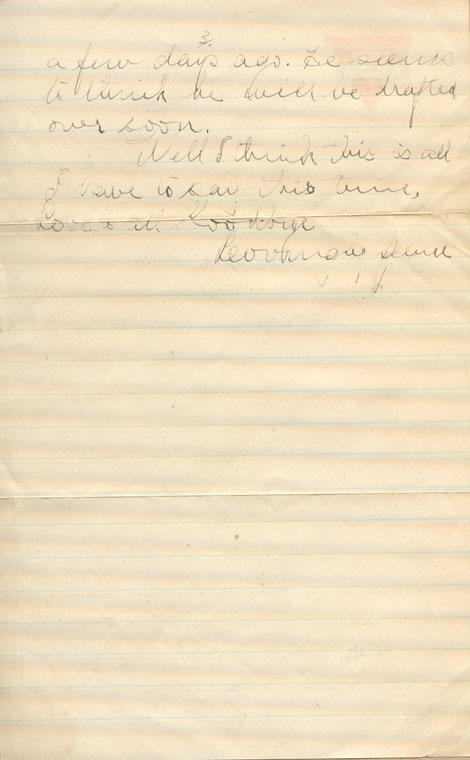 3.
a few days ago. He seems
to think he will be drafted
over soon.
Well I think this is all
I have to say this time,
Love to all Good bye